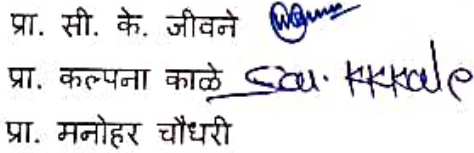 प्रा. सी. के. जीवने
प्रा. कल्पना काळे Sau. KKKale
प्रा. मनोहर चौधरी